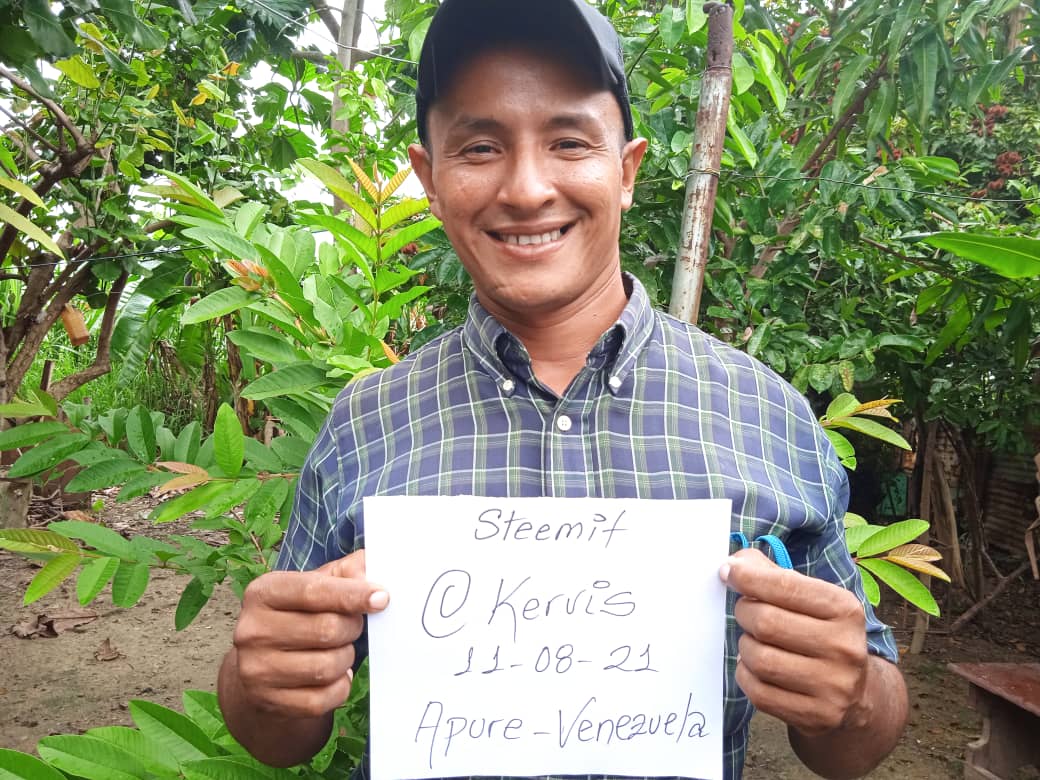 Steemit
@Kervis
11-08-21
Apure-Venezuela